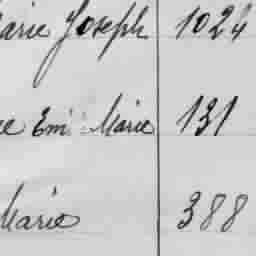 arie Joseph 1024
ee Em Marie 131
Marie 388